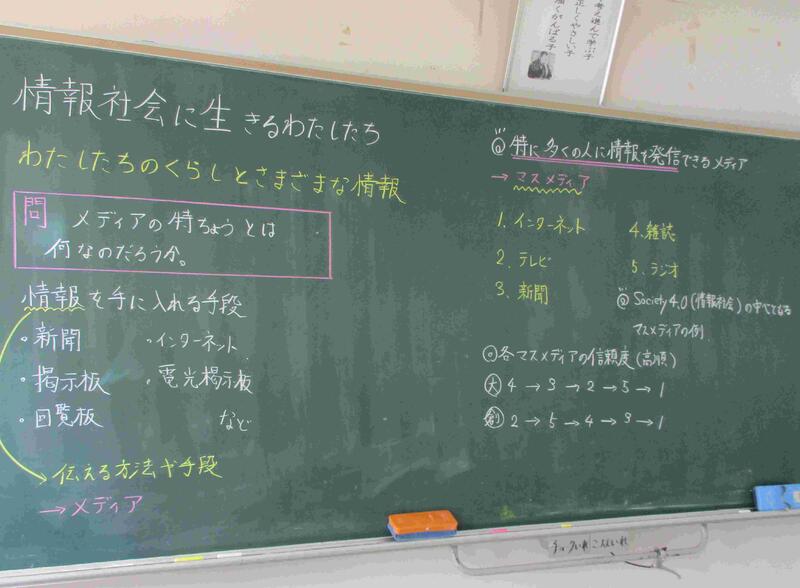 考え進んで学ぶ子
正しくやさしい子
強くがんばる子
情報社会に生きるわたしたち
わたしたちのくらしとさまざまな情報
問 メディアの特ちょうとは
何なのだろうか。
情報を手に入れる手段
・新聞 ・インターネット
・掲示板 ・電光掲示板
・回覧板 など
→伝える方法や手段
→メディア
@特に多くの人に情報を発信できるメディア
→マスメディア
1.インターネット
2.テレビ
3.新聞
4.雑誌
5.ラジオ
@Society4.0(情報社会)の中心となる
マスメディアの例
◎各マスメディアの信頼度(高順)
大 4→3→2→5→1
創 2→5→4→3→1